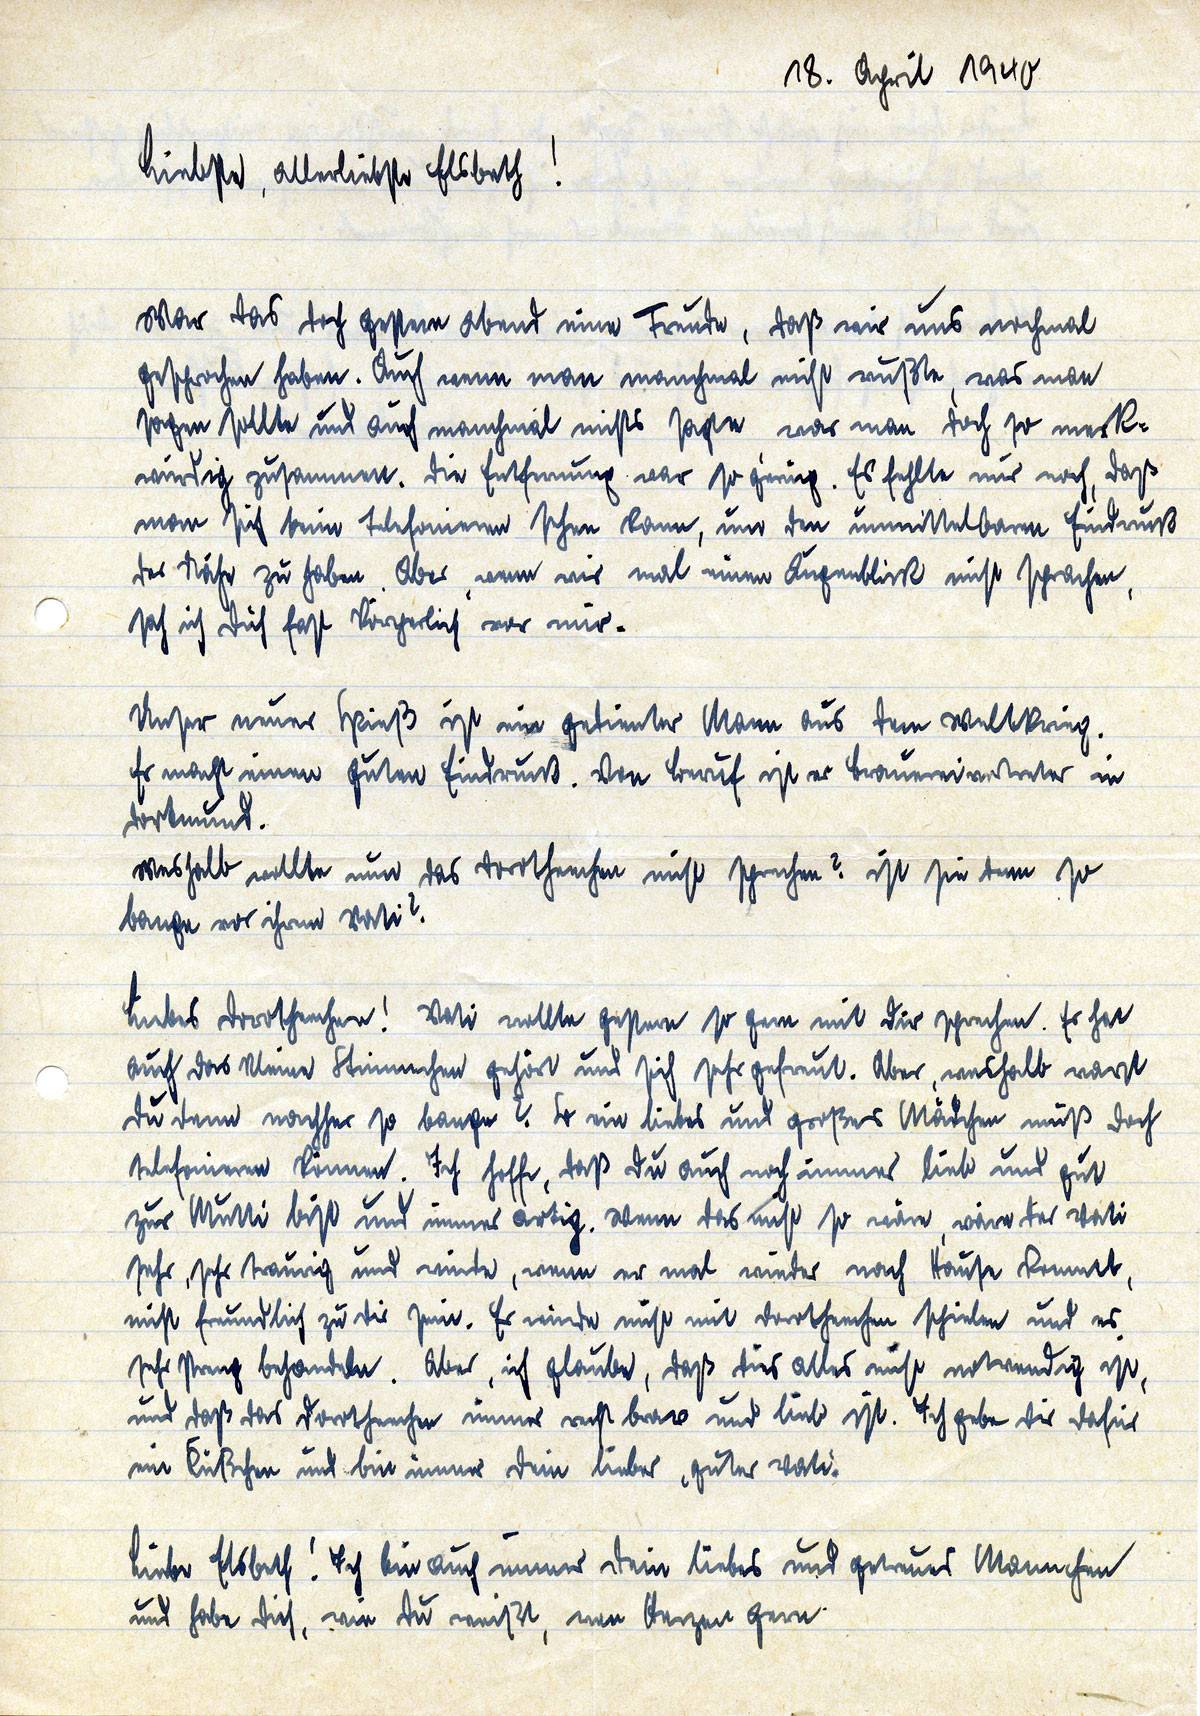 18. April 1940
Liebste, allerliebste Elsbeth!
War das doch gestern Abend eine Freude, daß wir uns nochmal
gesprochen haben. Auch wenn man manchmal nicht wußte, was man
sagen sollte und auch manchmal nichts sagte war man doch so merk=
würdig zusammen. Die Entfernung war so gering. Es fehlte nur noch, daß
man sich beim Telefonieren sehen kann, um den unmittelbaren Eindruck
der Nähe zu haben. Aber, wenn wir mal einen Augenblick nicht sprachen,
sah ich Dich fast körperlich vor mir.
Unser neuer Spieß ist ein gedienter Mann aus dem Weltkrieg.
Er macht einen guten Eindruck. Von Beruf ist er Brauereivertreter in
Dortmund.
Weshalb wollte nun das Dorotheechen nicht sprechen? ist sie denn so
bange vor ihrem Vati?
Liebes Dorotheechen! Vati wollte gestern so gern mit Dir sprechen. Er hat
auch das kleine Stimmchen gehört und sich sehr gefreut. Aber, weshalb warst
Du denn nachher so bange? So ein liebes und großes Mädchen muß doch
telefonieren können. Ich hoffe, daß Du auch noch immer lieb und gut
zur Mutti bist und immer artig. Wenn das nicht so wäre, wäre der Vati
sehr, sehr traurig und würde, wenn er mal wieder nach Hause kommt,
nicht freundlich zu Dir sein. Er würde nicht mit Dorotheechen spielen und es
sehr streng behandeln. Aber, ich glaube, daß dies alles nicht notwendig ist,
und daß das Dorotheechen immer recht brav und lieb ist. Ich gebe Dir dafür
ein Küßchen und bin immer Dein lieber, guter Vati.
Liebe Elsbeth! Ich bin auch immer Dein liebes und getreues Männchen
und habe Dich, wie Du weißt, von Herzen gern